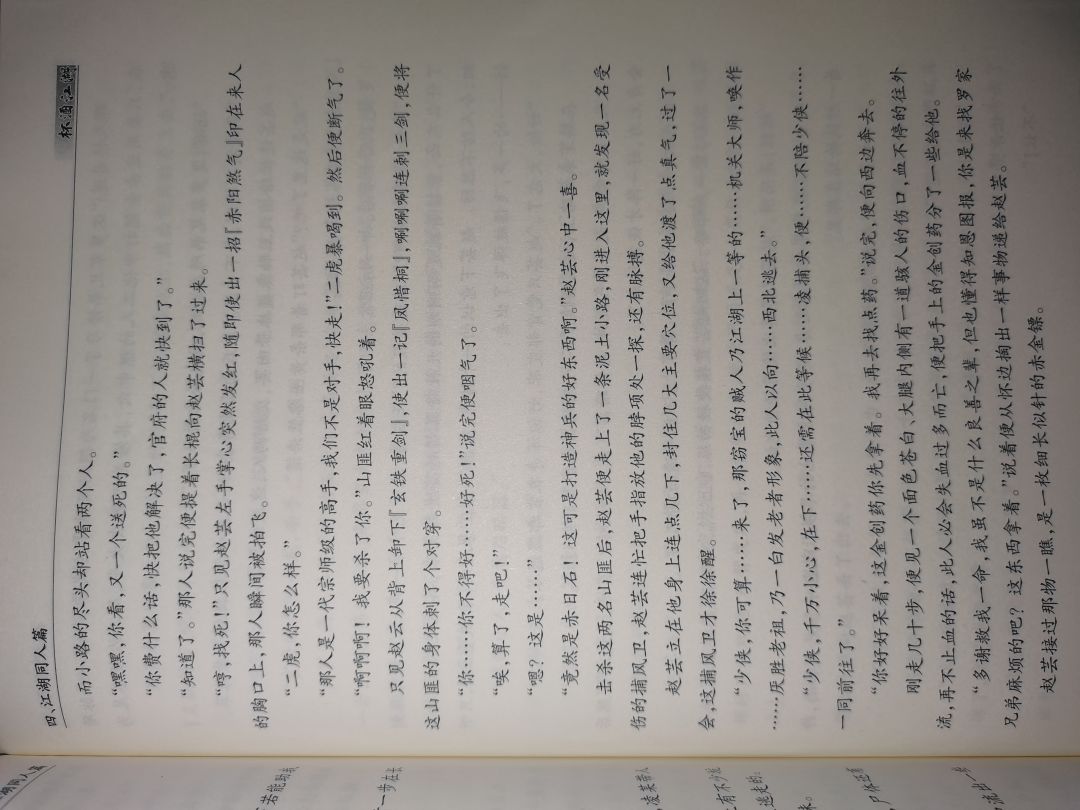 四、江湖同人篇
杯酒江湖
而小路的尽头却站看两个人。
“嘿嘿，你看，又一个送死的。”
“你费什么话，快把他解决了，官府的人就快到了。”
“知道了。”那人说完便提着长棍向赵芸横扫了过来。
“哼，找死！”只见赵芸左手掌心突然发红，随即使出一招『赤阳煞气』印在来人
的胸口上，那人瞬间被拍飞。
“二虎，你怎么样。”
“那人是一代宗师级的高手，我们不是对手，快走！”二虎暴喝到。然后便断气了。
“啊啊啊！我要杀了你。”山匪红着眼怒吼着。
只见赵云从背上卸下『玄铁重剑』，使出一记『凤惜桐』，唰唰唰连刺三剑，便将
这山匪的身体刺了个对穿。
“你……你不得好……好死！”说完便咽气了。
“唉，算了，走吧！”
“嗯？这是……”
“竟然是赤日石！这可是打造神兵的好东西啊。”赵芸心中一喜。
击杀这两名山匪后，赵芸便走上了一条泥土小路，刚进入这里，就发现一名受
伤的捕风卫，赵芸连忙把手指放他的脖项处一探，还有脉搏。
赵芸立在他身上连点几下，封住几大主要穴位，又给他渡了点真气，过了一
会，这捕风卫才徐徐醒。
“少侠，你可算……来了，那窃宝的贼人乃江湖上一等的……机关大师，唤作
……厌胜老祖，乃一白发老者形象，此人以向……西北逃去。”
“少侠，千万小心，在下……还需在此等候……凌捕头，便……不陪少侠……
一同前往了。”
“你好好呆着，这金创药你先拿着。我再去找点药。”说完，便向西边奔去。
刚走几十步，便见一个面色苍白、大腿内侧有一道骇人的伤口，血不停的往外
流，再不止血的话，此人必会失血过多而亡，便把手上的金创药分了一些给他。
“多谢救我一命，我虽不是什么良善之辈，但也懂得知恩图报，你是来找罗家
兄弟麻烦的吧？这东西拿着。”说着便从怀边掏出一样事物递给赵芸。
赵芸接过那物一瞧，是一枚细长似针的赤金镖。